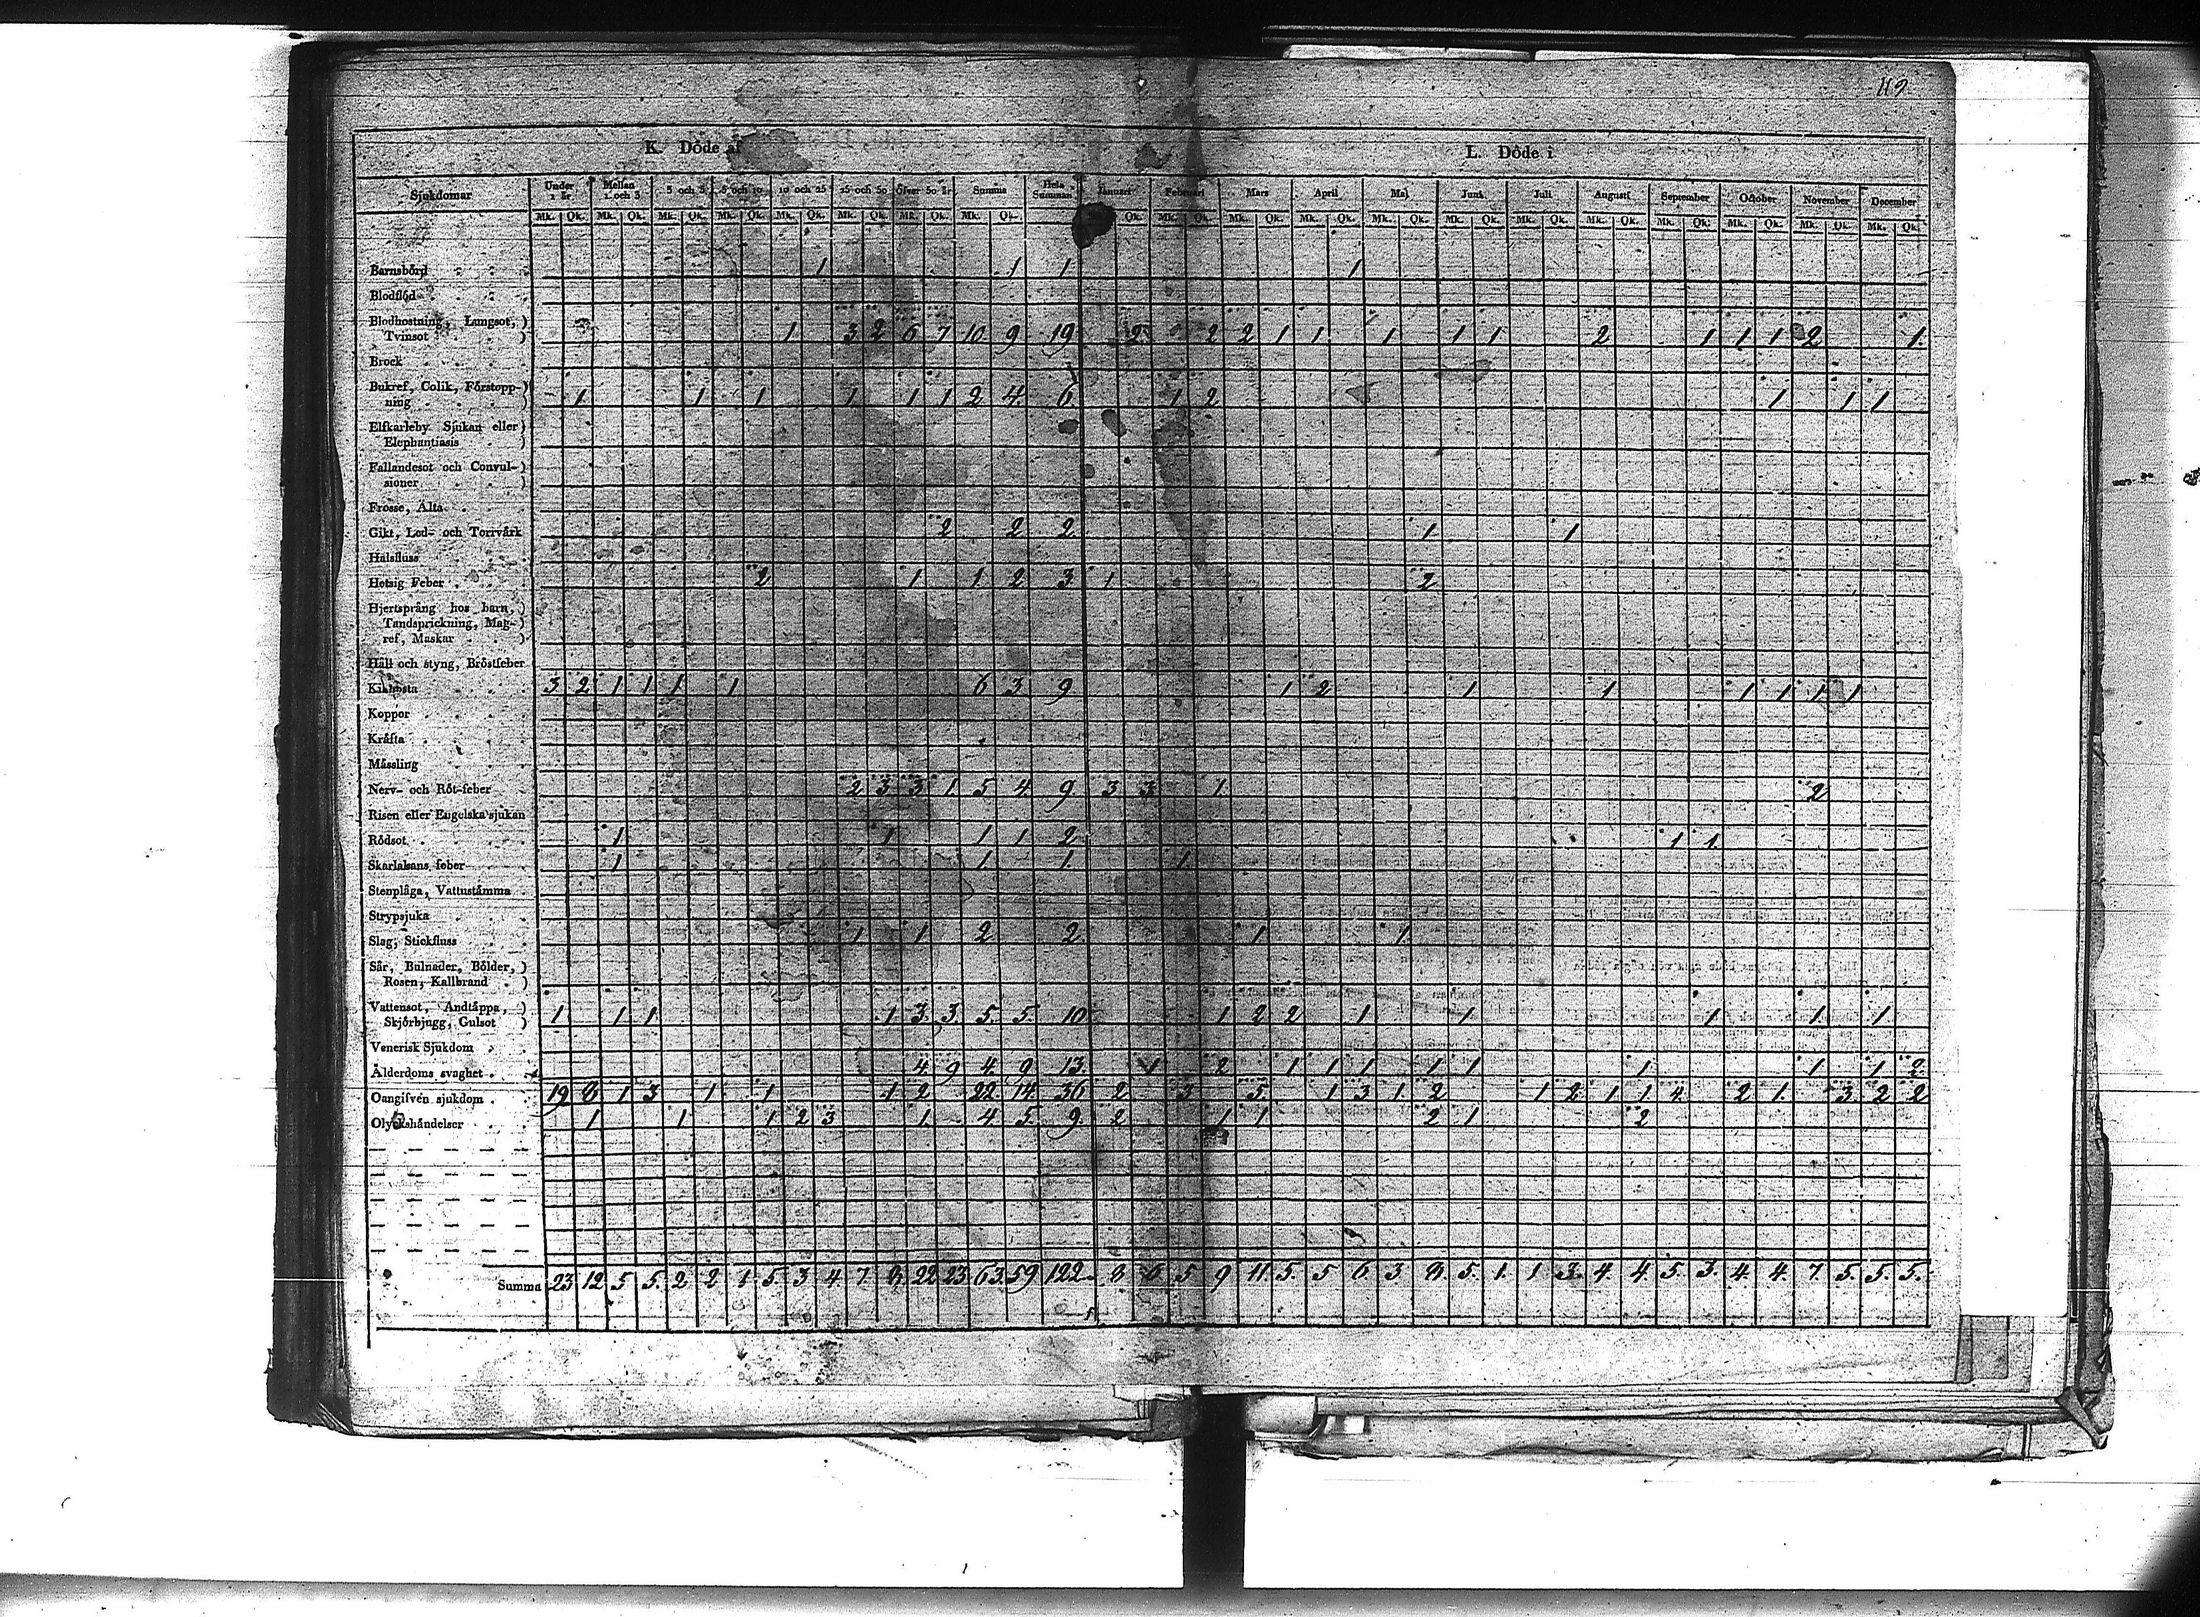 119
K. Döde af
L. Döde i
Sjukdomar Under 1 år Mellan 1 och 3 3 och 5 5 och 10 10 och 25 25 och 50 Öfver 50 år Summa Hela Summan Januari Februari Mars April Maj Junii Julii Augusti September October November December
Mk. Qk. Mk. Qk. Mk. Qk. Mk. Qk. Mk. Qk. Mk. Qk. Mk. Qk. Mk. Qk. Qk. Mk. Qk. Mk. Qk. Mk. Qk. Mk. Qk. Mk. Qk. Mk. Qk. Mk. Qk. Mk. Qk. Mk. Qk. Mk. Qk. Mk. Qk.
Barnsbörd 1 1 1 1
Blodflöd
Blodhostning, Lungsot,
Tvinsot 1 3 2 6 7 10 9 19 2 2 2 1 1 1 1 1 2 1 1 1 2 1
Brock
Bukref, Colik, Förstopp-
ning 1 1 1 1 1 1 2 4 6 1 2 1 1 1
Elfkarleby Sjukan eller
Elephantiasis
Fallandesot och Convul-
sioner
Frosse, Älta
Gikt, Led- och Torrvärk 2 2 2 1 1
Halsfluss
Hetsig Feber 2 1 1 2 3 1 2
Hjertsprång hos barn,
Tandsprickning, Mag-
ref, Maskar
Håll och styng, Bröstfeber
Kikhosta 3 2 1 1 1 1 6 3 9 1 2 1 1 1 1 1 1
Koppor
Kräfta
Mässling
Nerv- och Röt-feber 2 3 3 1 5 4 9 3 3 1 2
Risen eller Engelska sjukan
Rödsot 1 1 1 1 2 1 1
Skarlakans feber 1 1 1 1
Stenplåga, Vattustämma
Strypsjuka
Slag, Stickfluss 1 1 2 2 1 1
Sår, Bulnader, Bölder,
Rosen, Kallbrand
Vattensot, Andtäppa,
Skjörbjugg, Gulsot 1 1 1 1 3 3 5 5 10 1 2 2 1 1 1 1 1
Venerisk Sjukdom
Ålderdoms svaghet 4 9 4 9 13 1 2 1 1 1 1 1 1 1 1 2
Oangifven sjukdom 19 8 1 3 1 1 1 2 22 14 36 2 3 5 1 3 1 2 1 2 1 1 4 2 1 3 2 2
Olyckshändelser 1 1 1 2 3 1 4 5 9 2 1 1 2 1 2
Summa 23 12 5 5 2 2 1 5 3 4 7 8 22 23 63 59 122 8 6 5 9 11 5 5 6 3 8 5 1 1 3 4 4 5 3 4 4 7 5 5 5